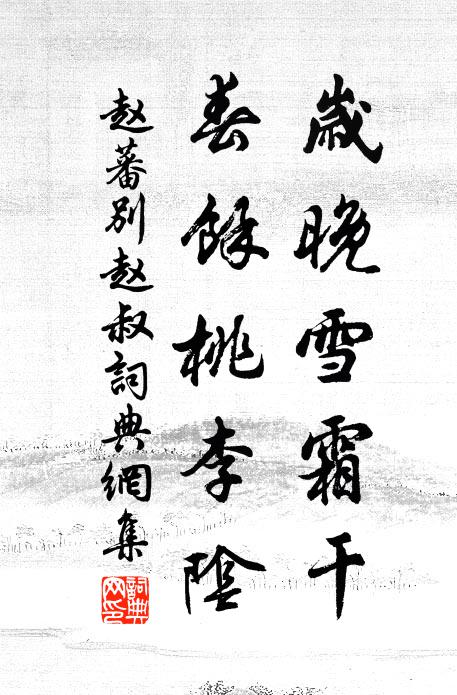 歲晚雪霜干
春餘桃李陰
赵蕃别赵叔詞典網集
詞典网印